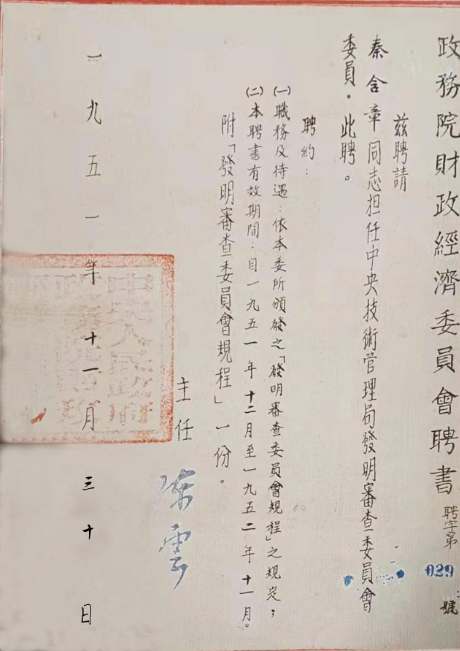 政務院財政經濟委員會聘書
聘字第029號
兹聘請
秦含章同志担任中央技術管理局發明審查委員會
委員。此聘。
聘約：
㈠職務及待遇：依本委所頒發之「發明審查委員會規程」之規定；
㈡本聘書有效期間：自一九五一年十二月至一九五二年十一月。
附「發明審查委員會規程」一份。
主任 陳雲
一九五一年十一月三十日